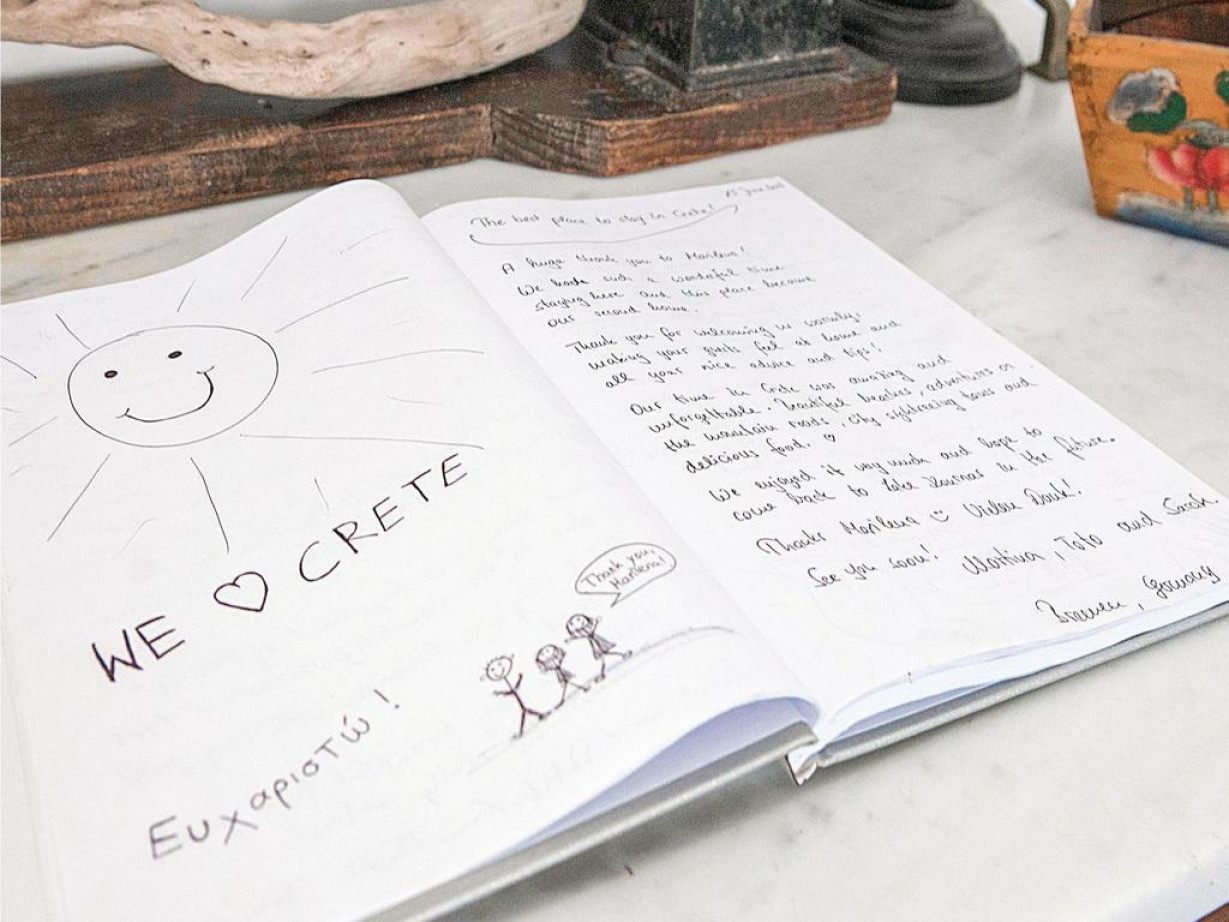 WE ♡ CRETE
Ευχαριστώ!
Thank you,
Marilena!
25 June
The best place to stay in Crete!
A huge thank you to Marilena!
We had such a wonderful time
staying here and this place became
our second home.
Thank you for welcoming us warmly,
making your guests feel at home and
all your nice advice and tips!
Our time in Crete was amazing and
unforgettable. Beautiful beaches, adventures on
the mountain roads, city sightseeing tours and
delicious food. ♡
We enjoyed it very much and hope to
come back to Lake Kournas in the future.
Thanks Marilena ☺ Vielen Dank!
See you soon! Martina, Toto and Sarah,
Bremen, Germany